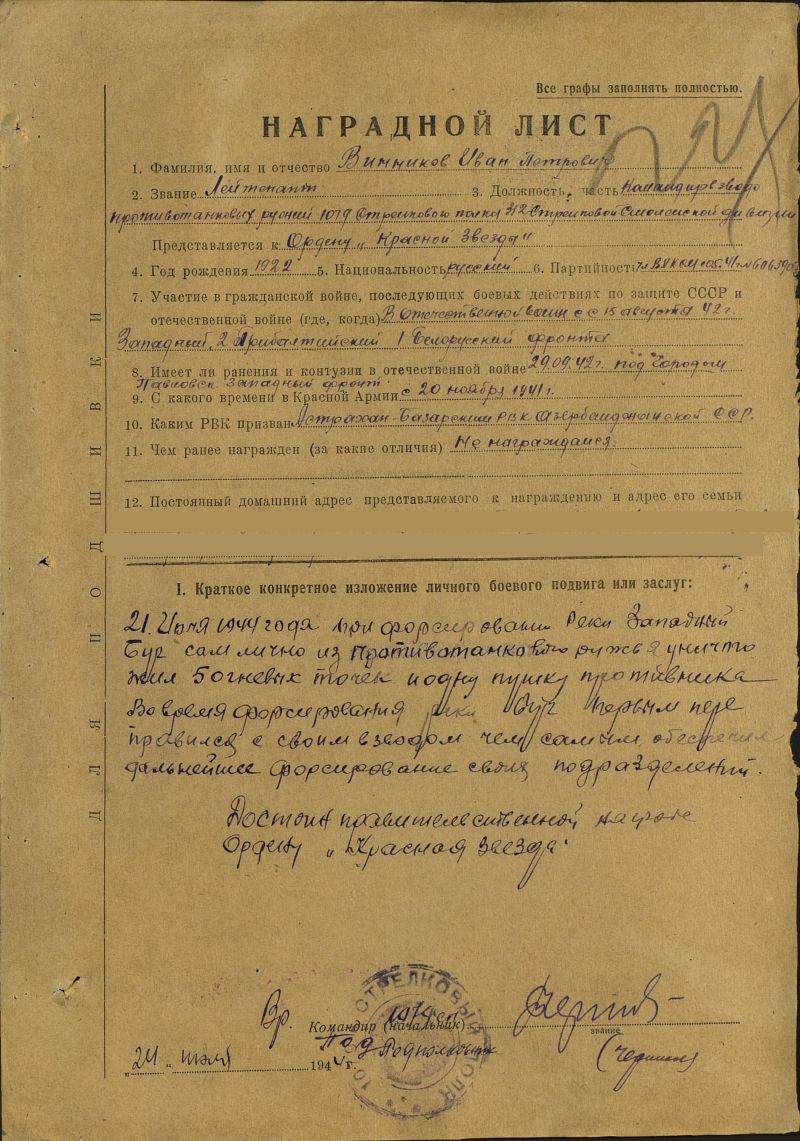 Все графы заполнять полностью.
НАГРАДНОЙ ЛИСТ
1. Фамилия, имя и отчество Винников Иван Петрович
2. Звание Лейтенант 3. Должность, часть Командир взвода
противотанковых ружей 1079 Стрелкового полка 312 Стрелковой Смоленской дивизии
Представляется к Ордену „Красной Звезда"
4. Год рождения 1922 5. Национальность русский 6. Партийность
7. Участие в гражданской войне, последующих боевых действиях по защите СССР и
отечественной войне (где, когда) В Отечественной войне с 15 августа 42 г.
Западный, 2 Прибалтийский 1 Белорусский фронта
8. Имеет ли ранения и контузии в отечественной войне 29.09.42г. под городом
Западный фронт
9. С какого времени в Красной Армии с 20 ноября 1941 г.
10. Каким РВК призван Астрахан-Базарский РВК Азербайджанской ССР.
11. Чем ранее награжден (за какие отличия) Не награждался.
12. Постоянный домашний адрес представляемого к награждению и адрес его семьи
I. Краткое конкретное изложение личного боевого подвига или заслуг:
21 Июля 1944 года при форсировании Реки Западный
Буг сам лично из Противотанкового ружья уничто
жил 5 огневых точек и одну пушку противника
Во время форсирования реки Буг первым пере
правился с своим взводом чем самым обеспечил
дальнейшее форсирование своих подразделений.
Достоин правительственной награде
Ордену „Красная звезда"
Вр. Командир (начальник)
звание
Подполковник
„24" июля 1944 г.
ДЛЯ ПОДШИВКИ